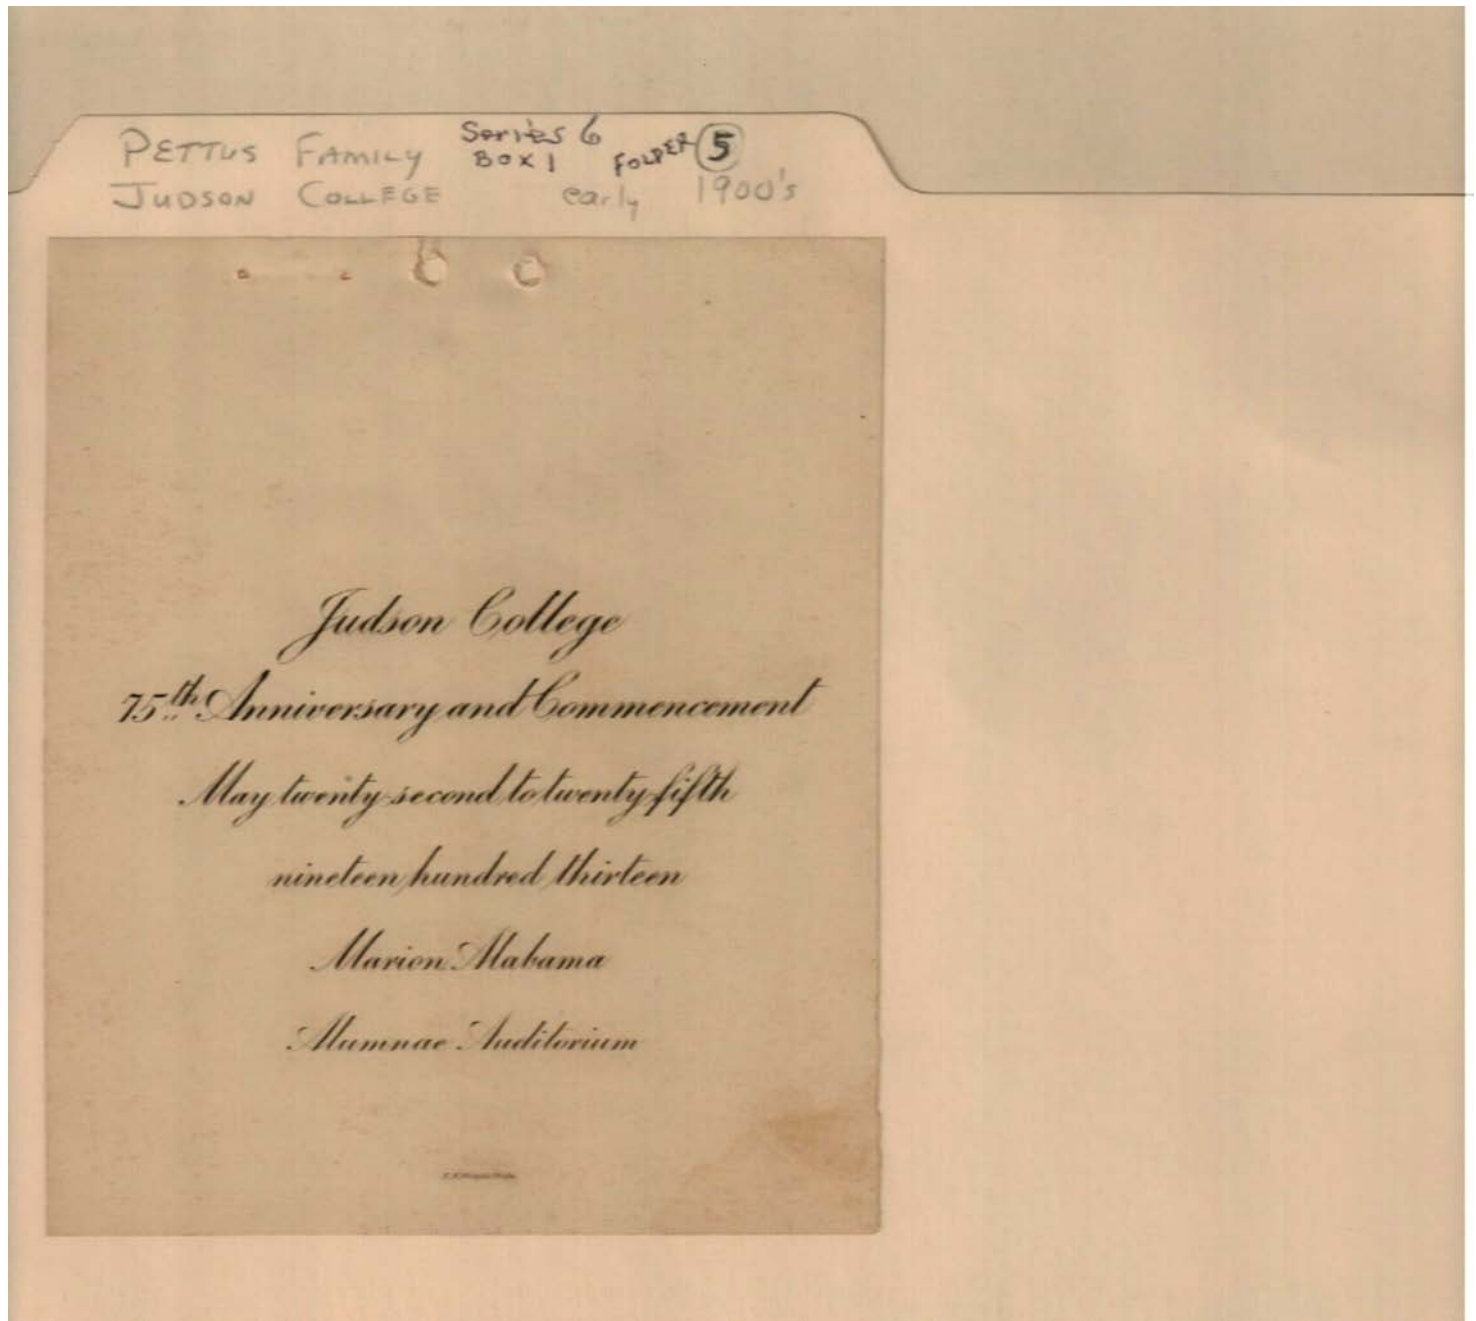 PETTUS FAMILY Series 6 FOLDER 5
BOX 1
JUDSON COLLEGE early 1900's
Judson College
75th Anniversary and Commencement
May twenty-second to twenty-fifth
nineteen hundred thirteen
Marion Alabama
Alumnae Auditorium